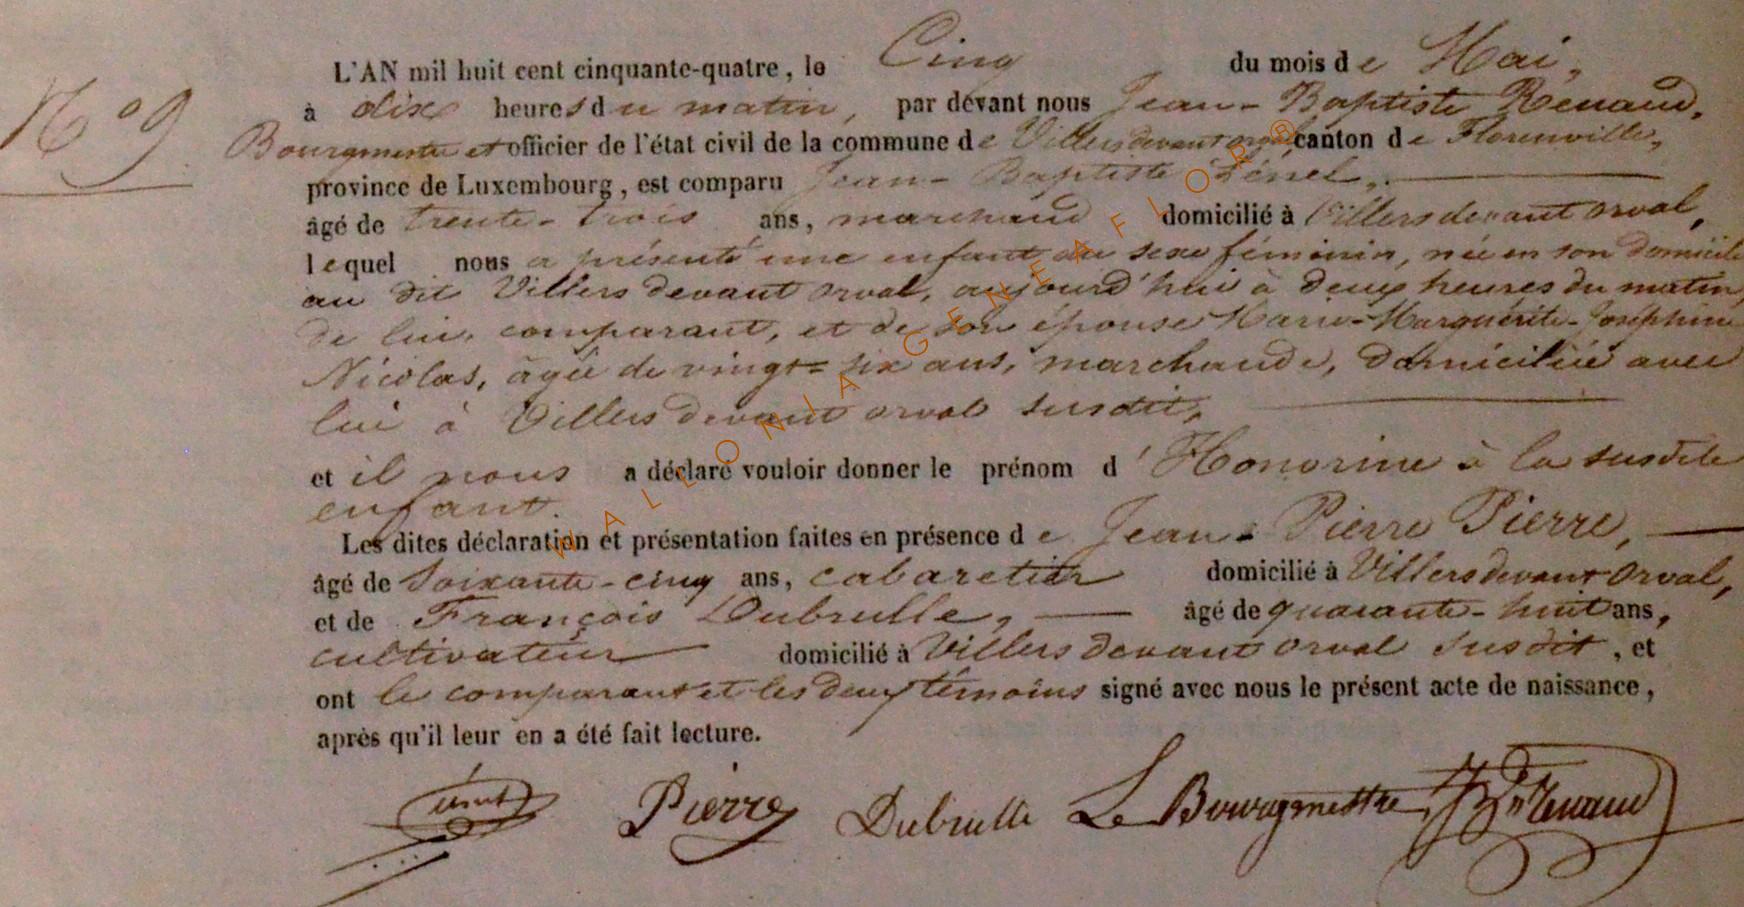 N° 9
L'AN mil huit cent cinquante-quatre, le Cinq du mois de Mai,
à dix heures du matin, par devant nous Jean-Baptiste Renaud,
Bourgmestre et officier de l'état civil de la commune de Villers devant orval canton de Florenville,
province de Luxembourg, est comparu Jean-Baptiste
âgé de trente-trois ans, marchand domicilié à Villers devant orval,
lequel nous a présenté une enfant du sexe féminin, née en son domicile
au dit Villers devant orval, aujourd'hui à deux heures du matin,
de lui, comparant, et de son épouse Marie-Marguérite-Joséphine
Nicolas, âgée de vingt=six ans, marchande, domiciliée avec
lui à Villers devant orval susdit,
et il nous a déclaré vouloir donner le prénom d'Honorine à la susdite
enfant.
Les dites déclaration et présentation faites en présence de Jean-Pierre Pierre,
âgé de Soixante-cinq ans, cabaretier domicilié à Villers devant Orval,
et de François Dubrulle, âgé de quarante-huit ans,
cultivateur domicilié à Villers devant orval susdit, et
ont le comparant et les deux témoins signé avec nous le présent acte de naissance,
après qu'il leur en a été fait lecture.
Pierre Dubrulle Le Bourgmestre, JBte Renaud
WALLONIA GENEAFLOR®